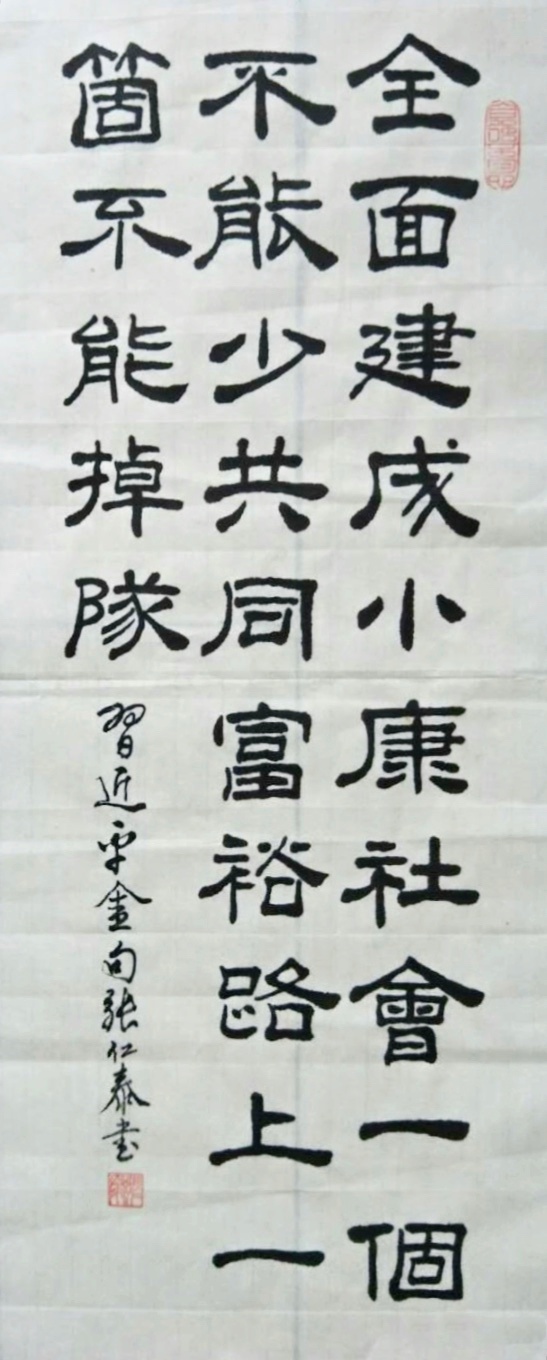 全面建成小康社會一個
不能少共同富裕路上一
箇不能掉隊
習近平金句張仁泰書